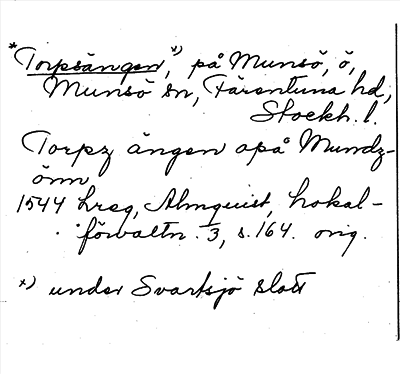 *Torpsängen,*) på Munsö, ö,
Munsö sn, Färentuna hd,
Stockh. l.
Torpz ängen opå Mundz-
önn
1544 hreg, Almquist, Lokal-
förvaltn. 3, s. 164. orig.
*) under Svartsjö slott